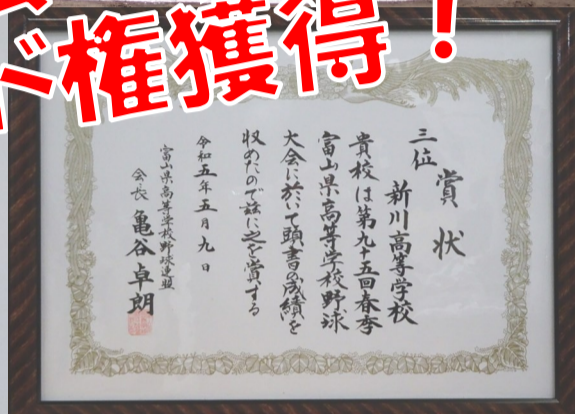 ド権獲得！
賞状
三位
新川高等学校
貴校は第九十五回春季
富山県高等学校野球
大会に於いて頭書の成績を
収めたので茲に之を賞する
令和五年五月九日
富山県高等学校野球連盟
会長 亀谷卓朗